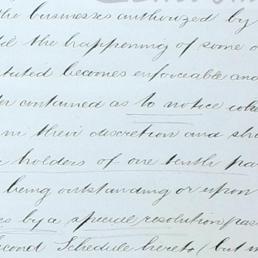 the businesses authorized by
the happening of some o
stituted becomes enforceable and
contained as to notice
in their discretion and sh
holders of one tenth pa
being outstanding or upon
by a special resolution pas
Second Schedule hereto (but